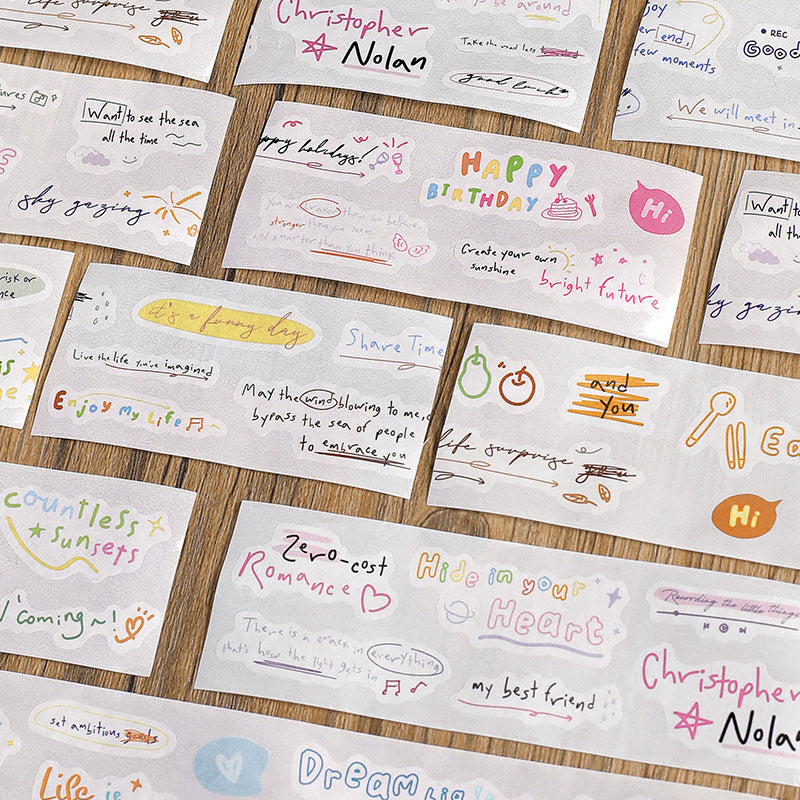 life surprise you
Christopher
Nolan
to be around
Take the road less
good luck
enjoy
end,
few moments
REC
Good
We will meet in
Want to see the sea
all the time
sky gazing
happy holidays!
You are braver than you believe,
stronger than you seem,
and smarter than you think
HAPPY
BIRTHDAY
Hi
Create your own
sunshine
bright future
Want to
all the
sky gazing
risk or
it's a funny day
Share Time
Live the life you've imagined
Enjoy My Life
May the wind blowing to me,
bypass the sea of people
to embrace you
and
you
life surprise you
Ea
Hi
countless
sunsets
I'coming~!
Zero-cost
Romance
Hide in your
Heart
There is a crack in everything
that's how the light gets in
my best friend
Recording the little things
Christopher
Nolan
set ambitious goals
Life is
Dream